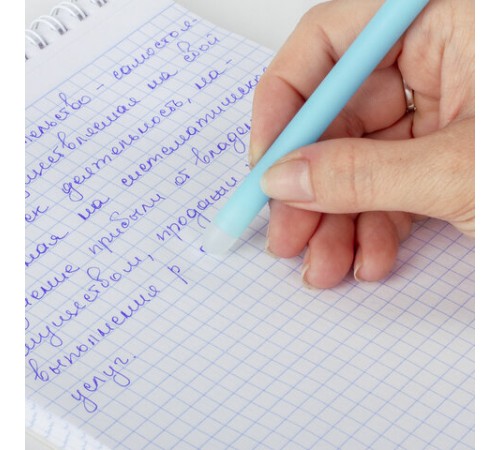 тельство - самостоя-
ществляемая на свой
ск деятельность, на-
ная на систематическо
чение прибыли от владен
муществом, продажи
выполнения р
услуг.